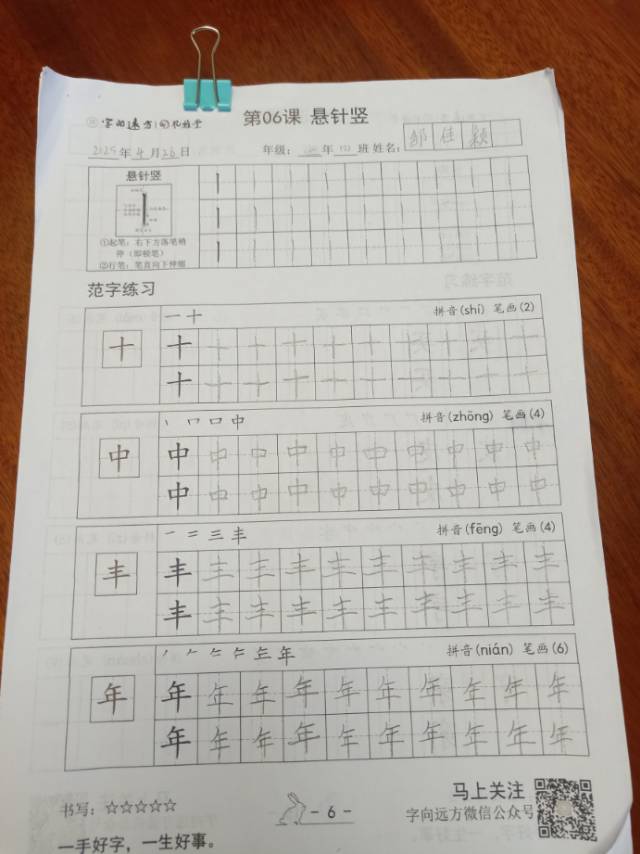 字向远方 | 硬笔课堂
第06课 悬针竖
2025年4月26日 年级: 年 班 姓名: 邹佳颖
悬针竖
①起笔:右下方落笔稍
作(即顿笔)
②行笔:笔直向下伸缩
范字练习
一 十 拼音(shí) 笔画(2)
十 十 十 十 十 十 十 十 十 十 十 十
十 十 十 十 十 十 十 十 十 十 十
丨 口 口 中 拼音(zhōng) 笔画(4)
中 中 中 中 中 中 中 中 中 中 中 中
中 中 中 中 中 中 中 中 中 中 中
一 二 三 丰 拼音(fēng) 笔画(4)
丰 丰 丰 丰 丰 丰 丰 丰 丰 丰 丰 丰
丰 丰 丰 丰 丰 丰 丰 丰 丰 丰 丰
年 拼音(nián) 笔画(6)
年 年 年 年 年 年 年 年 年 年 年 年
年 年 年 年 年 年 年 年 年 年 年
书写:☆☆☆☆☆ - 6 - 马上关注
字向远方微信公众号
一手好字,一生好事。